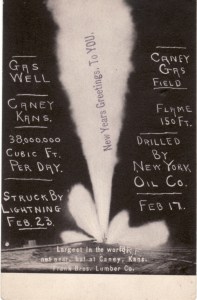 GAS
WELL
CANEY
KANS.
38,000,000
CUBIC FT.
PER DAY.
STRUCK BY
LIGHTNING
FEB. 23.
New Years Greetings. To YOU.
CANEY
GAS
FIELD
FLAME
150 FT.
DRILLED
BY
NEW YORK
OIL CO.
FEB 17.
Largest in the world,
not over, but at Caney, Kans.
Frank Bros. Lumber Co.